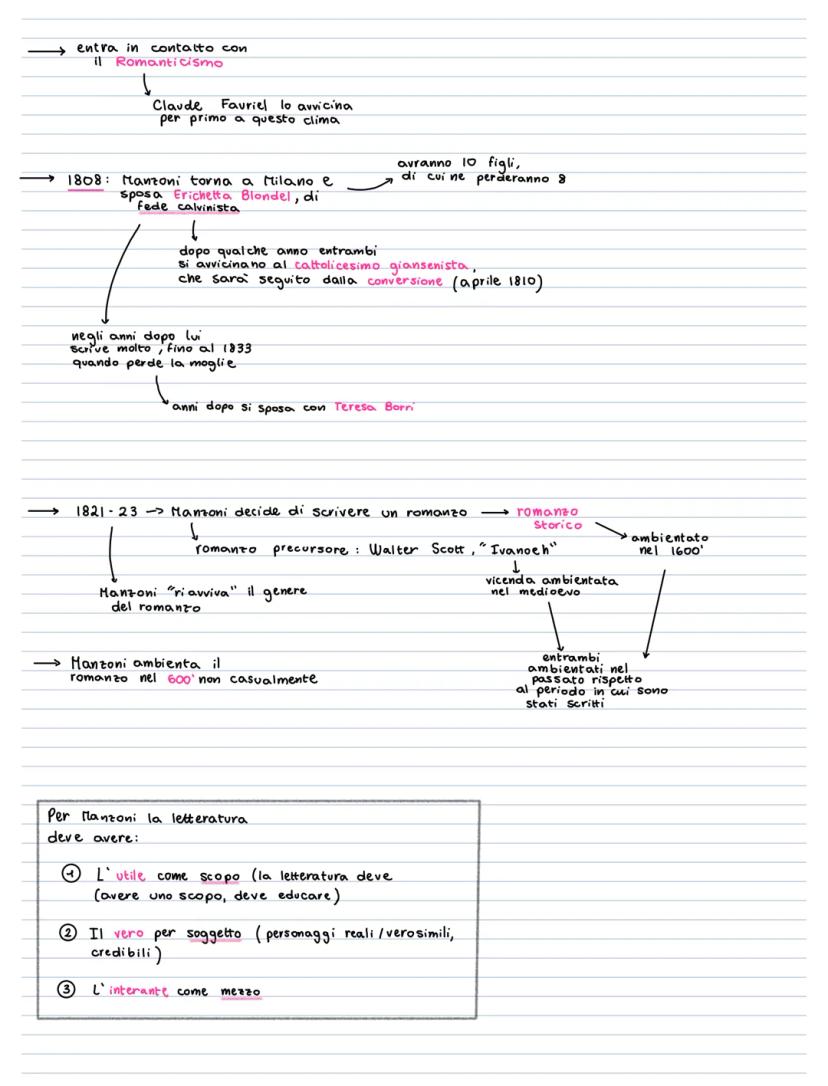 → entra in contatto con
il Romanticismo
Claude Fauriel lo avvicina
per primo a questo clima
avranno 10 figli,
di cui ne perderanno 8
→ 1808: Manzoni torna a Milano e
sposa Erichetta Blondel, di
fede calvinista
dopo qualche anno entrambi
si avvicinano al cattolicesimo giansenista,
che sarà seguito dalla conversione (aprile 1810)
negli anni dopo lui
scrive molto, fino al 1833
quando perde la moglie
anni dopo si sposa con Teresa Borri
→ 1821-23 → Manzoni decide di scrivere un romanzo → romanzo
storico
ambientato
nel 1600'
romanzo precursore: Walter Scott, "Ivanoeh"
vicenda ambientata
nel medioevo
Manzoni "riavviva" il genere
del romanzo
→ Manzoni ambienta il
romanzo nel 600' non casualmente
entrambi
ambientati nel
passato rispetto
al periodo in cui sono
stati scritti
Per Manzoni la letteratura
deve avere:
① L'utile come scopo (la letteratura deve
(avere uno scopo, deve educare)
② Il vero per soggetto (personaggi reali/verosimili,
credibili)
③ L'interante come mezzo